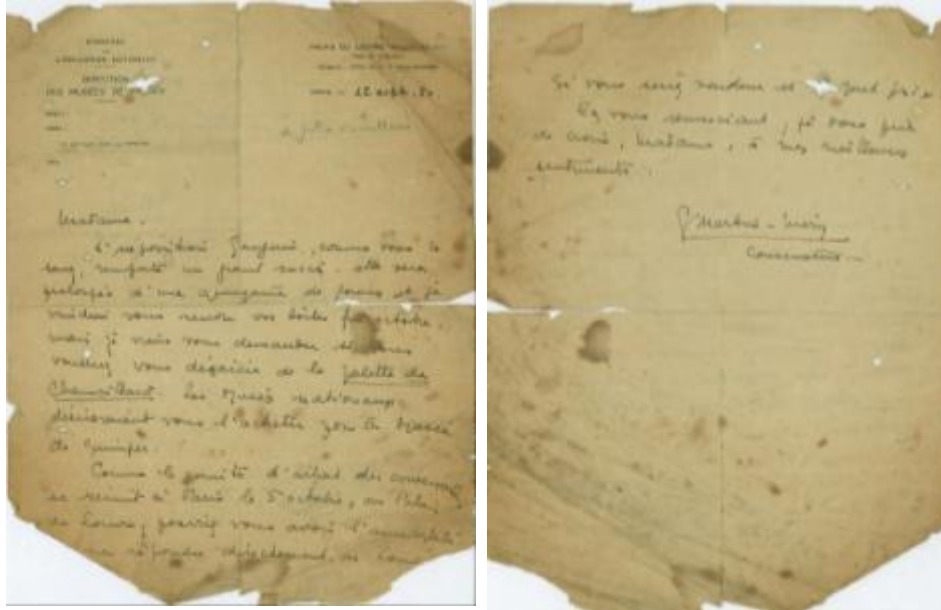 MINISTÈRE
DE
L'ÉDUCATION NATIONALE
DIRECTION
DES MUSÉES DE FRANCE
PALAIS DU LOUVRE
PARIS, LE 12 sept. 50
Madame.
L'exposition Gauguin, comme vous le
savez, remporte un grand succès. elle sera
prolongée d'une quinzaine de jours et je
viendrai vous rendre vos boîtes fin octobre.
mais je viens vous demander si vous
voulez vous dégarnir de la palette de
Chamaillard. Les Musées nationaux
désireraient vous l'acheter pour le Musée
de Quimper.
Comme le comité d'achat des
se réunit à Paris le 5 octobre, au Palais
du Louvre, pourriez vous avoir l'amabilité
me répondre directement, au Louvre
Si vous seriez vendeuse et à quel prix
En vous remerciant, je vous prie
de croire, Madame, à mes meilleurs
sentiments.
G Martin-Méry
Conservateur